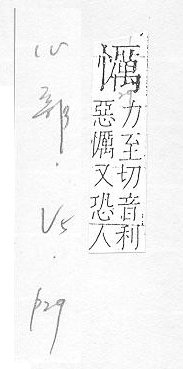 力至切音利
惡又恐人
心部.V5.p29